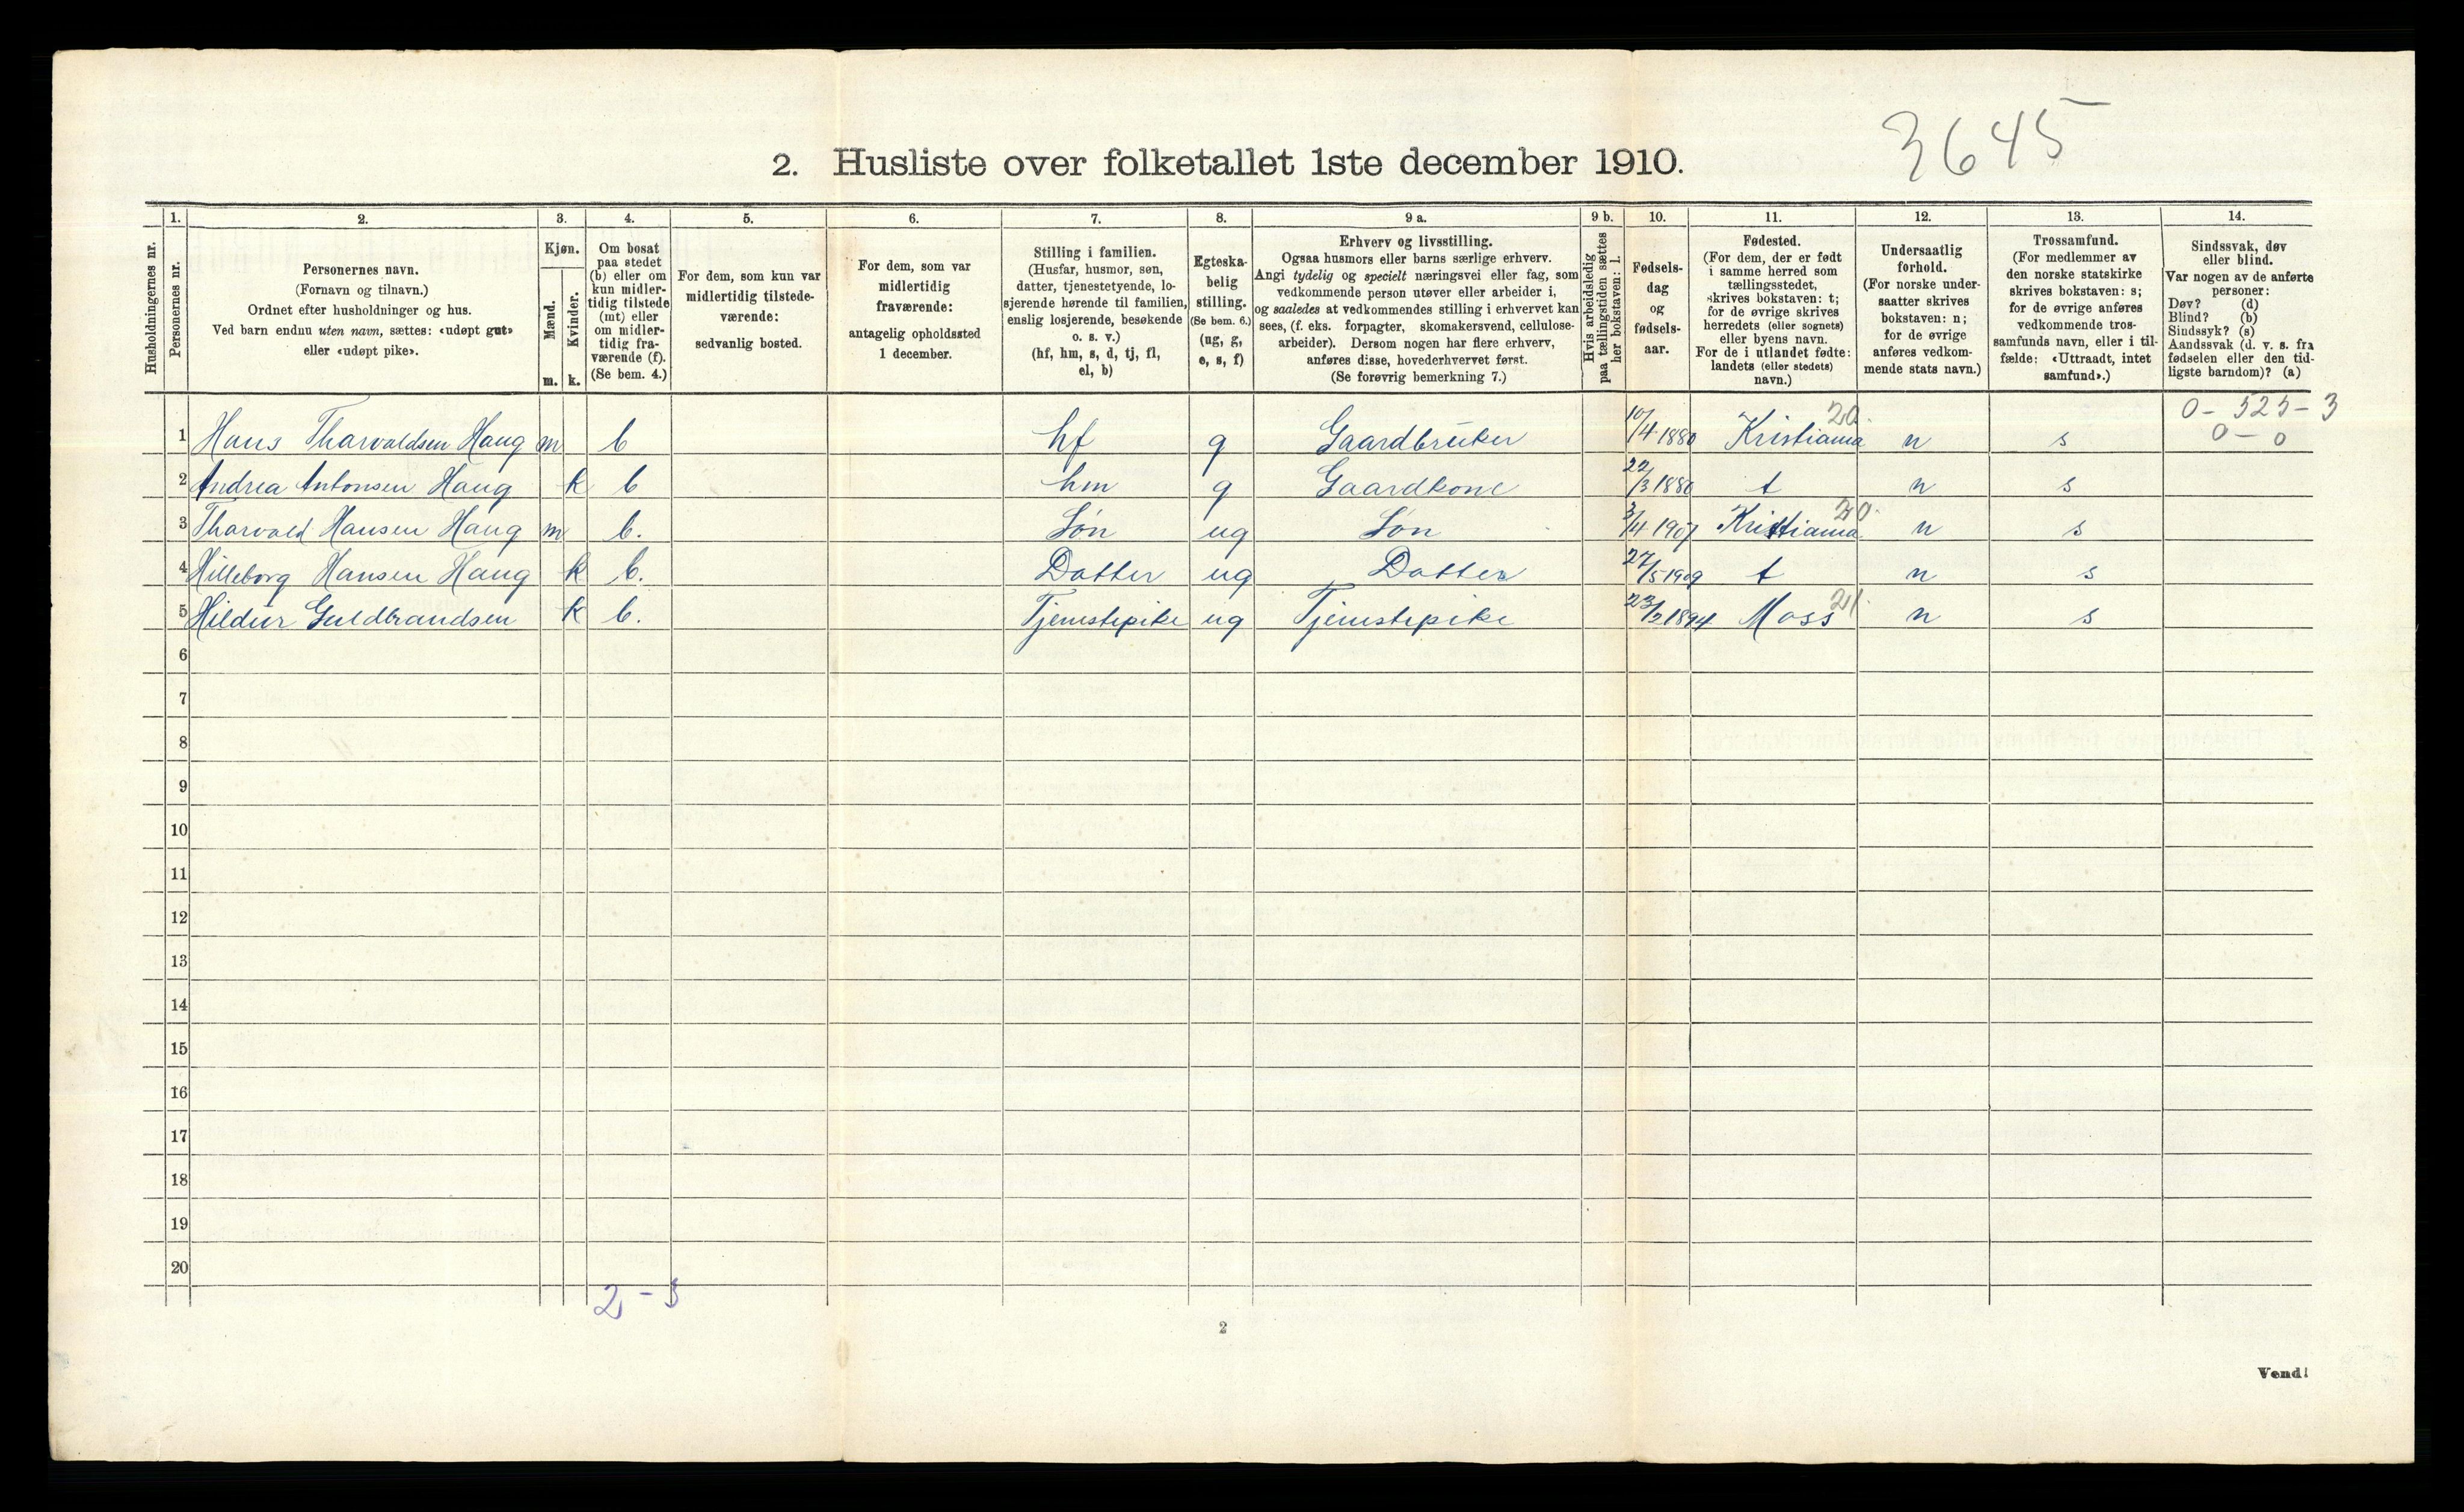 3645
2. Husliste over folketallet 1ste december 1910.
Husholdningernes nr.
1. Personernes nr.
2. Personernes navn.
(Fornavn og tilnavn.)
Ordnet efter husholdninger og hus.
Ved barn endnu uten navn, sættes: «udøpt gut»
eller «udøpt pike».
3. Kjøn.
Mænd. m.
Kvinder. k.
4. Om bosat
paa stedet
(b) eller om
kun midler-
tidig tilstede
(mt) eller
om midler-
tidig fra-
værende (f).
(Se bem. 4.)
5. For dem, som kun var
midlertidig tilstede-
værende:
sedvanlig bosted.
6. For dem, som var
midlertidig
fraværende:
antagelig opholdssted
1 december.
7. Stilling i familien.
(Husfar, husmor, søn,
datter, tjenestetyende, lo-
sjerende hørende til familien,
enslig losjerende, besøkende
o. s. v.)
(hf, hm, s, d, tj, fl,
el, b)
8. Egteska-
belig
stilling.
(Se bem. 6.)
(ug, g,
e, s, f)
9 a. Erhverv og livsstilling.
Ogsaa husmors eller barns særlige erhverv.
Angi tydelig og specielt næringsvei eller fag, som
vedkommende person utøver eller arbeider i,
og saaledes at vedkommendes stilling i erhvervet kan
sees, (f. eks. forpagter, skomakersvend, cellulose-
arbeider). Dersom nogen har flere erhverv,
anføres disse, hovederhvervet først.
(Se forøvrig bemerkning 7.)
9 b. Hvis arbeidsledig
paa tællingstiden sættes
her bokstaven: l.
10. Fødsels-
dag
og
fødsels-
aar.
11. Fødested.
(For dem, der er født
i samme herred som
tællingsstedet,
skrives bokstaven: t;
for de øvrige skrives
herredets (eller sognets)
eller byens navn.
For de i utlandet fødte:
landets (eller stedets)
navn.)
12. Undersaatlig
forhold.
(For norske under-
saatter skrives
bokstaven: n;
for de øvrige
anføres vedkom-
mende stats navn.)
13. Trossamfund.
(For medlemmer av
den norske statskirke
skrives bokstaven: s;
for de øvrige anføres
vedkommende tros-
samfunds navn, eller i til-
fælde: «Uttraadt, intet
samfund».)
14. Sindssvak, døv
eller blind.
Var nogen av de anførte
personer:
Døv? (d)
Blind? (b)
Sindssyk? (s)
Aandssvak (d. v. s. fra
fødselen eller den tid-
ligste barndom)? (a)
20. 0 - 525 - 3
1 Hans Tharvaldsen Haug m b hf g Gaardbruker 10/4 1880 Kristiania n s 0 - 0
2 Andrea Antonsen Haug k b hm g Gaardkone 22/3 1880 t n s
20.
3 Tharvald Hansen Haug m b. Søn ug Søn 3/4 1907 Kristiania n s
4 Hilleborg Hansen Haug k b. Datter ug Datter 27/5 1909 t n s
21.
5 Hildur Guldbrandsen k b. Tjenstepike ug Tjenstepike 23/2 1894 Moss n s
6
7
8
9
10
11
12
13
14
15
16
17
18
19
20
2 - 3
2
Vend!